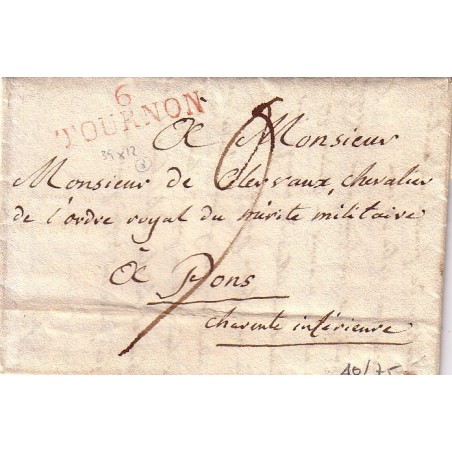 6
TOURNON
39 x 12
à Monsieur
9
Monsieur de Clervaux, chevalier
de l'ordre royal du mérite militaire
à Pons
charente inférieure
40/75